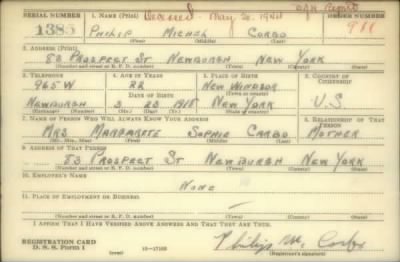 SERIAL NUMBER 1. NAME (Print) Deceased - May 20. 1944 DAV Report ORDER NUMBER
1385 PHILIP MICHEL CARBO 988
(First) (Middle) (Last)
2. ADDRESS (Print)
83 PROSPECT ST NEWBURGH NEW YORK
(Number and street or R. F. D. number) (Town) (County) (State)
3. TELEPHONE 4. AGE IN YEARS 5. PLACE OF BIRTH 6. COUNTRY OF CITIZENSHIP
965 W 22 NEW WINDSOR
DATE OF BIRTH (Town or county)
NEWBURGH 3 23 1918 NEW YORK U.S.
(Exchange) (Number) (Mo.) (Day) (Yr.) (State or country)
7. NAME OF PERSON WHO WILL ALWAYS KNOW YOUR ADDRESS 8. RELATIONSHIP OF THAT PERSON
MRS MARGARETE SOPHIE CARBO MOTHER
(Mr., Mrs., Miss) (First) (Middle) (Last)
9. ADDRESS OF THAT PERSON
83 PROSPECT ST NEWBURGH NEW YORK
(Number and street or R. F. D. number) (Town) (County) (State)
10. EMPLOYER'S NAME
NONE
11. PLACE OF EMPLOYMENT OR BUSINESS
—
(Number and street or R. F. D. number) (Town) (County) (State)
I AFFIRM THAT I HAVE VERIFIED ABOVE ANSWERS AND THAT THEY ARE TRUE.
REGISTRATION CARD
D. S. S. Form 1 (over) 16—17105 Philip M. Carbo
(Registrant's signature)